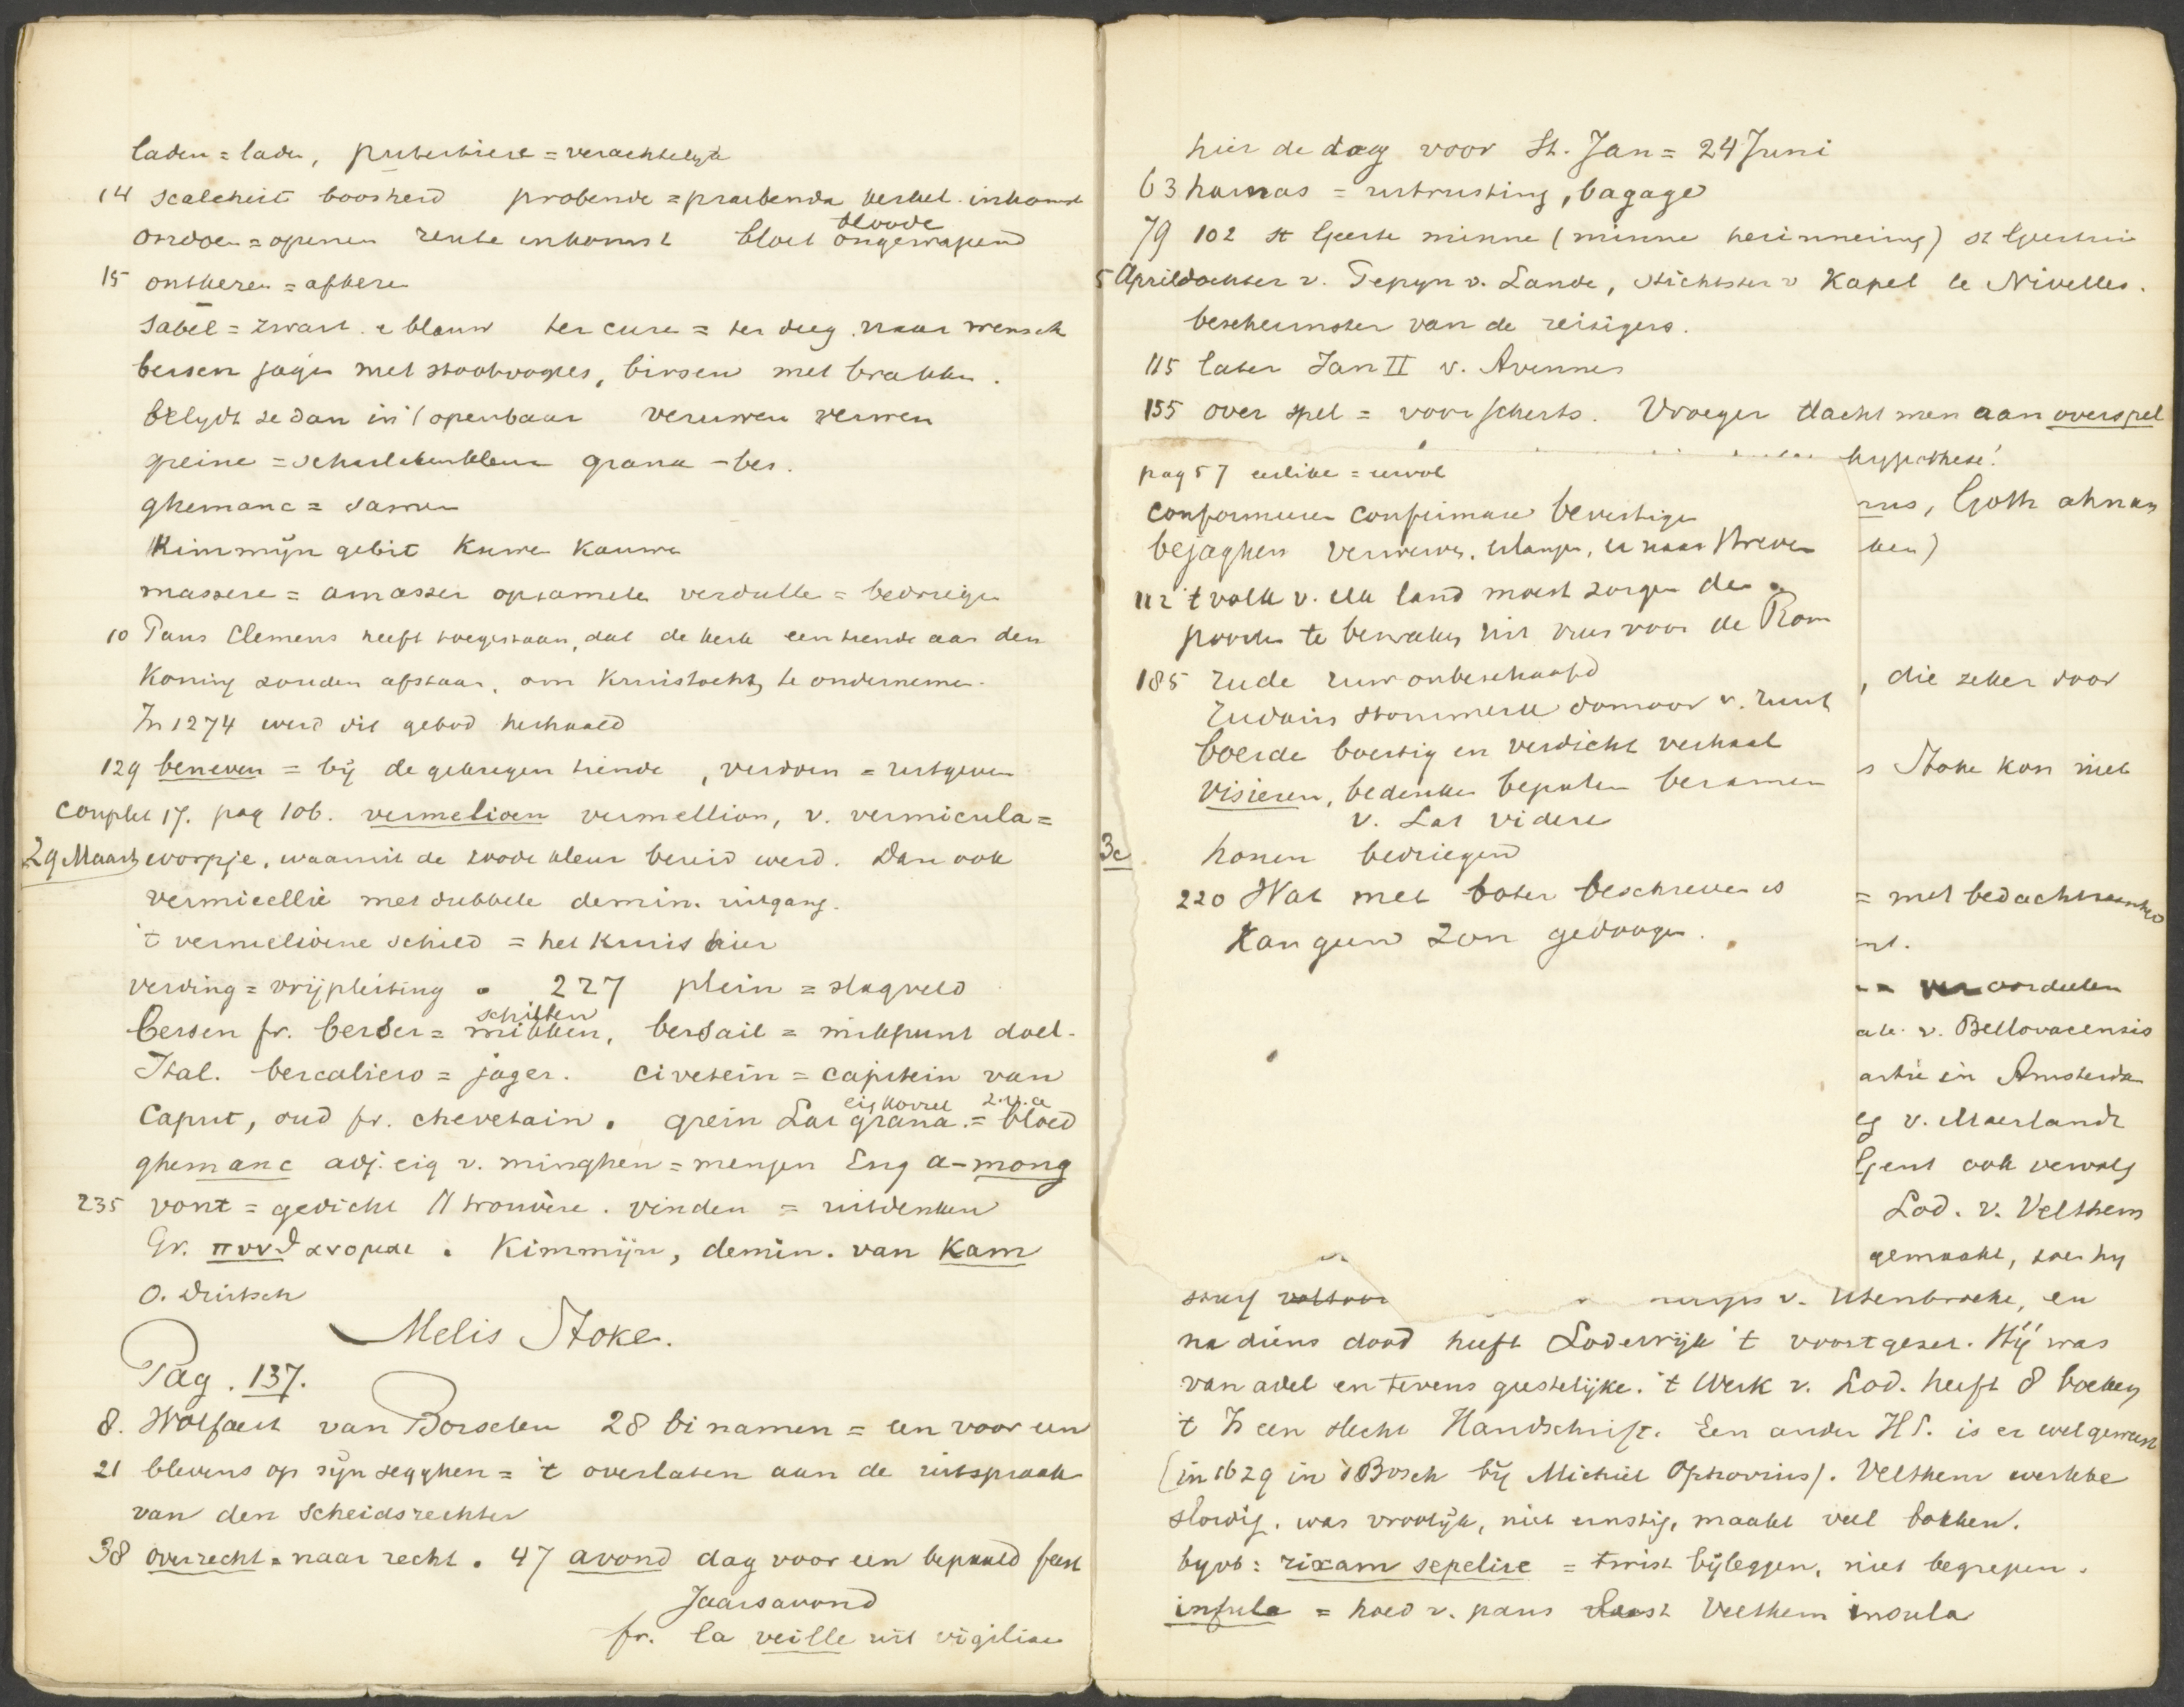 laden = laden, puterbiere = verachtelijk
14 scalcheit boosheid probende = praebenda kerkel. inkomst
ondoen = openen rente inkomst bloet bloode ongewapend
15 ontberen = afberen
Sabel = zwart. e blauw ter cure = ter deeg. naar wensch
bersen jagen met stootvogels, birsen met brakken.
belydt se dan in 't openbaar veruwen verwen
greine = scharlakenkleur grana - bes.
ghemanc = samen
Kimmijn gebit Kuwen Kauwen
massere = amasser opsamelen verdulle = bedreigen
10 Paus Clemens heeft toegestaan, dat de kerk een tiende aan den
Koning zouden afstaan, om Kruistocht, te ondernemen.
In 1274 werd dit gebod herhaald
129 beneven = bij de gekregen tiende, verdoen = uitgeven
Couplet 17. pag 106. vermelioen vermellion, v. vermicula =
29 Maart worpje, waarmit de roode kleur bereid werd. Dan ook
vermicellie met dubbele demin. uitgang.
't vermelioene schild = het Kruis hier
verding = vrijpleiting. 227 plein = slagveld
bersen fr. berser = schieten mikken, bersail = mikpunt doel.
Ital. bercaliero = jager. civetein = capitein van
Caput, oud fr. chevetain. grein Lat grana eig korrel = bloed
ghemanc adj. eig v. minghen = mengen Eng a-mong
235 vont = gedicht // trouvère. vinden = uitdenken
Gr. πυνθανομαι. Kimmijn, demin. van Kam
O. Duitsch
Melis Stoke.
Pag. 137.
8. Wolfaert van Borselen 28 bi namen = een voor een
21 blevens op sijn segghen = 't overlaten aan de uitspraak
van den Scheidsrechter
38 overrecht = naar recht. 47 avond dag voor een bepaald feest
Jaarsavond
fr. la veille uit vigiliae
hier de dag voor St. Jan = 24 Juni
63 harnas = uitrusting, bagage
79 102 st Geerte minne (minne herinnering) st Geertrui
5 April dochter v. Pepyn v. Lande, stichtster v Kapel te Nivelles.
beschermster van de reizigers.
115 later Jan II v. Avennes
155 over spel = voor scherts. Vroeger dacht men aan overspel
hypothese!
pag 57 eerlike = eervol
conformeren confirmare bevestigen
bejaghen verwerven, erlangen, er naar streven
112 't volk v. elk land moest zorgen de
poorten te bewaken uit vrees voor de Rom
185 rude ruw onbeschaafd
rudaris stommerik domoor v. ruut
boerde boertig en verdicht verhaal
visieren, bedenken bepalen beramen
v. Lat videre
3e honen bedriegen
220 Wat met boter beschreven is
Kan geen zon gedoogen.
rus, Goth ahnan
ken)
, die zeker door
s Stoke kon niet
= met bedachtzaamheid
nt.
veroordeelen
ale. v. Bellovacensis
artie in Amsterda
eg v. Maerlandt
Gent ook vervolg
Lod. v. Velthem
gemaakt, toen hy
v. Utenbroeke, en
na diens dood heeft Lodewijk 't voortgezet. Hij was
van adel en tevens geestelijke. 't Werk v. Lod. heeft 8 boeken
't Is een slecht Handschrift. Een ander HS. is er wel geweest
(in 1629 in d Bosch bij Michiel Ophovius). Velthem werkte
slordig. was vroolijk, niet ernstig, maakt veel bokken.
byvb: rixam sepelire = twist bijleggen, niet begrepen.
infula = hoed v. paus leest Velthem insula